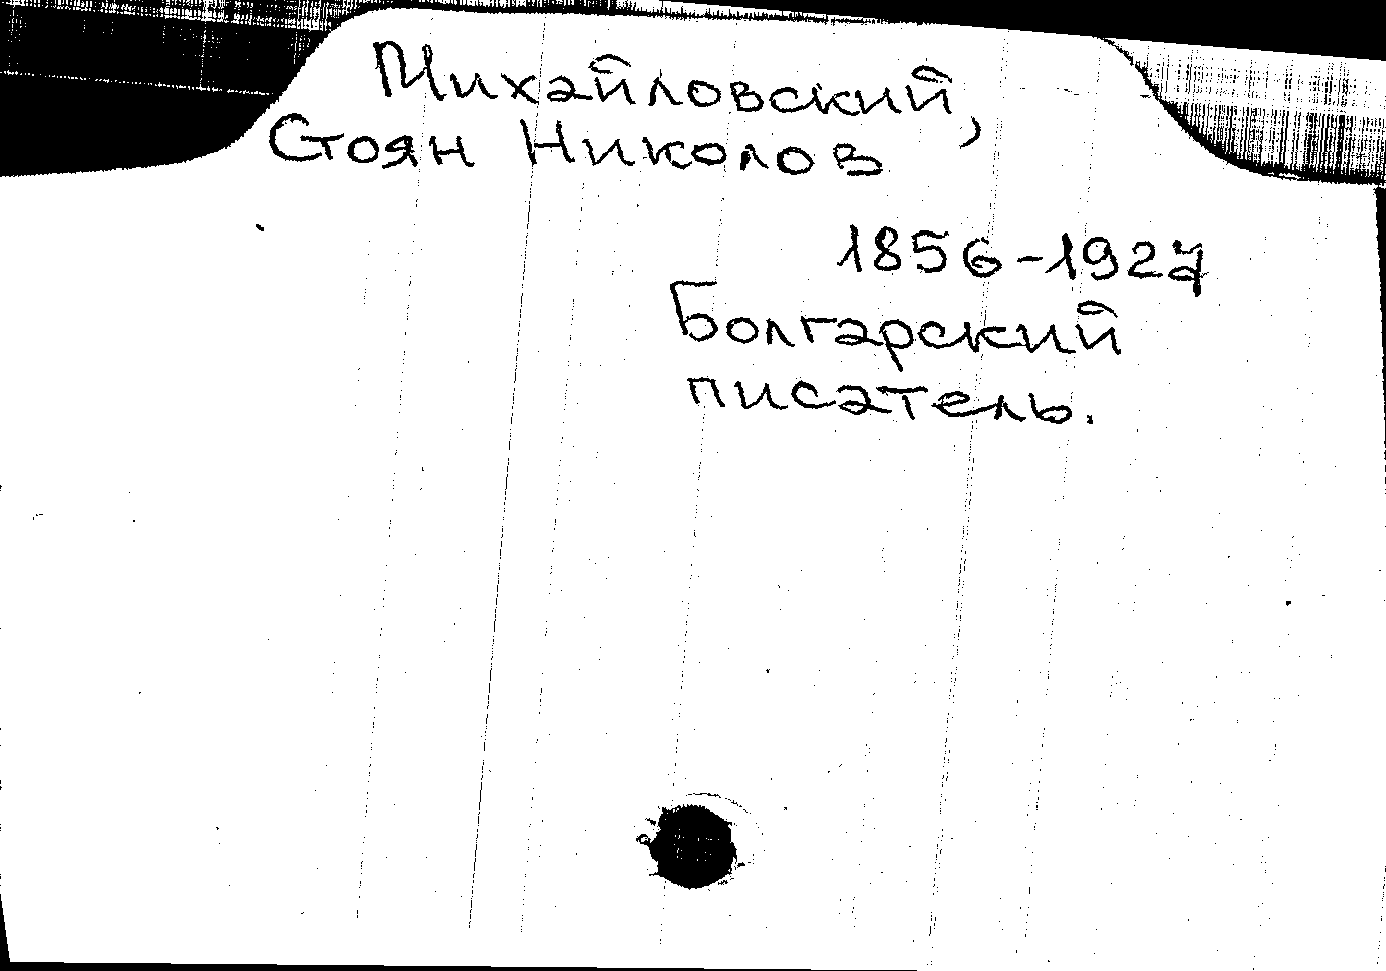 Михайловский,
Стоян Николов
1856-1927
Болгарский
писатель.